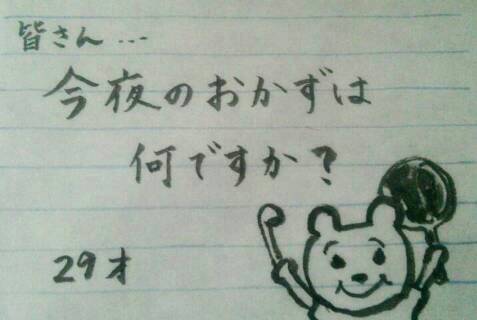 皆さん...
今夜のおかずは
何ですか?
29才